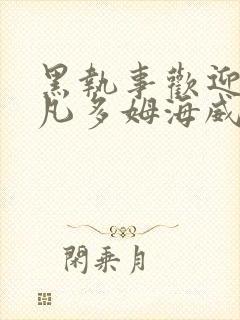 黑執事歡迎
凡多姆海威
閑乘月